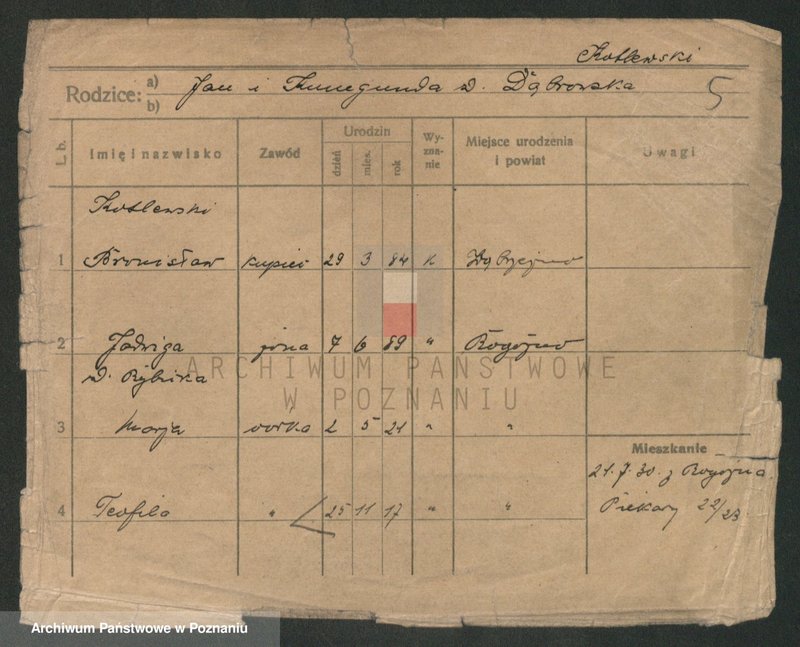 Kotlewski
Rodzice: a) Jan i Kunegunda d. Dąbrowska 5
b)
L. b. Imię i nazwisko Zawód Urodzin dzień mies. rok Wyznanie Miejsce urodzenia i powiat Uwagi
Kotlewski
1 Bronisław kupiec 29 3 84 k
2 Jadwiga żona 7 6 89 " Rogoźno
d. Rybicka
3 Marja córka 2 5 21 " "
Mieszkanie
21.7.30. z Rogoźna
4 Teofila " 25 11 17 " "
Piekary 22/23
ARCHIWUM PAŃSTWOWE
W POZNANIU
Archiwum Państwowe w Poznaniu